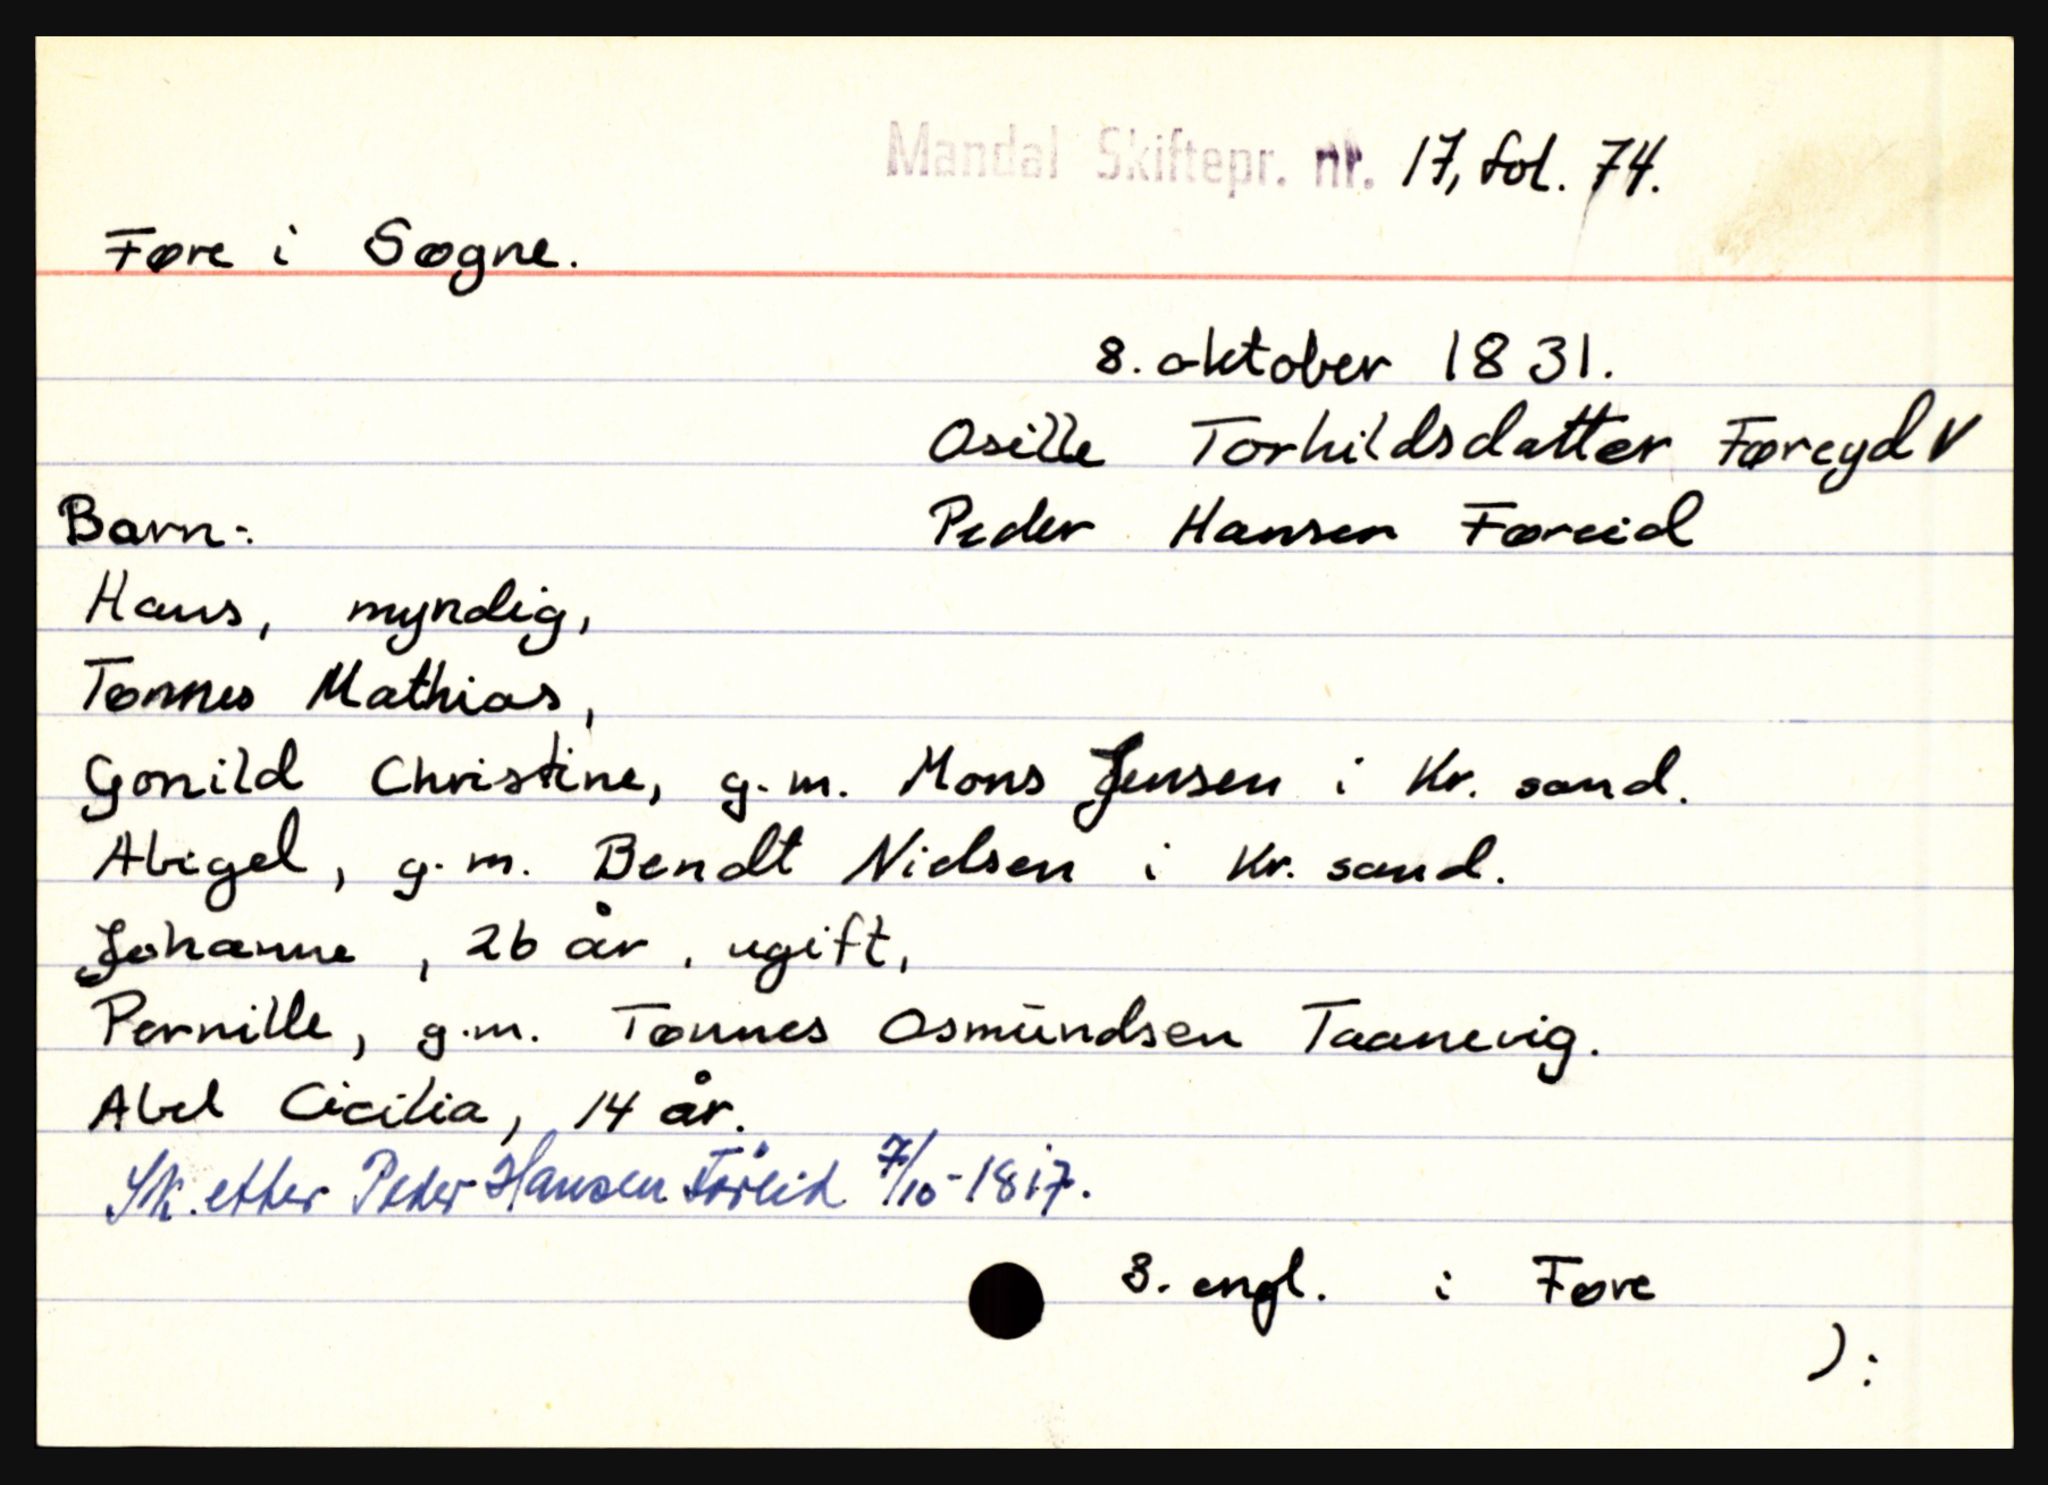 Mandal Skiftepr. nr. 17, fol. 74.
Føre i Søgne.
8. oktober 1831.
Osille Torhildsdatter Føreyd V
Barn: Peder Hansen Føreid
Hans, myndig,
Tønnes Mathias,
Gonild Christine, g.m. Mons Jensen i Kr. sand.
Abigel, g.m. Bendt Nielsen i Kr. sand.
Johanne, 26 år, ugift,
Pernille, g.m. Tønnes Osmundsen Taanevig.
Abel Cicilia, 14 år.
Sk. etter Peder Hansen Föreid 7/10-1817.
3. engl. i Føre
):